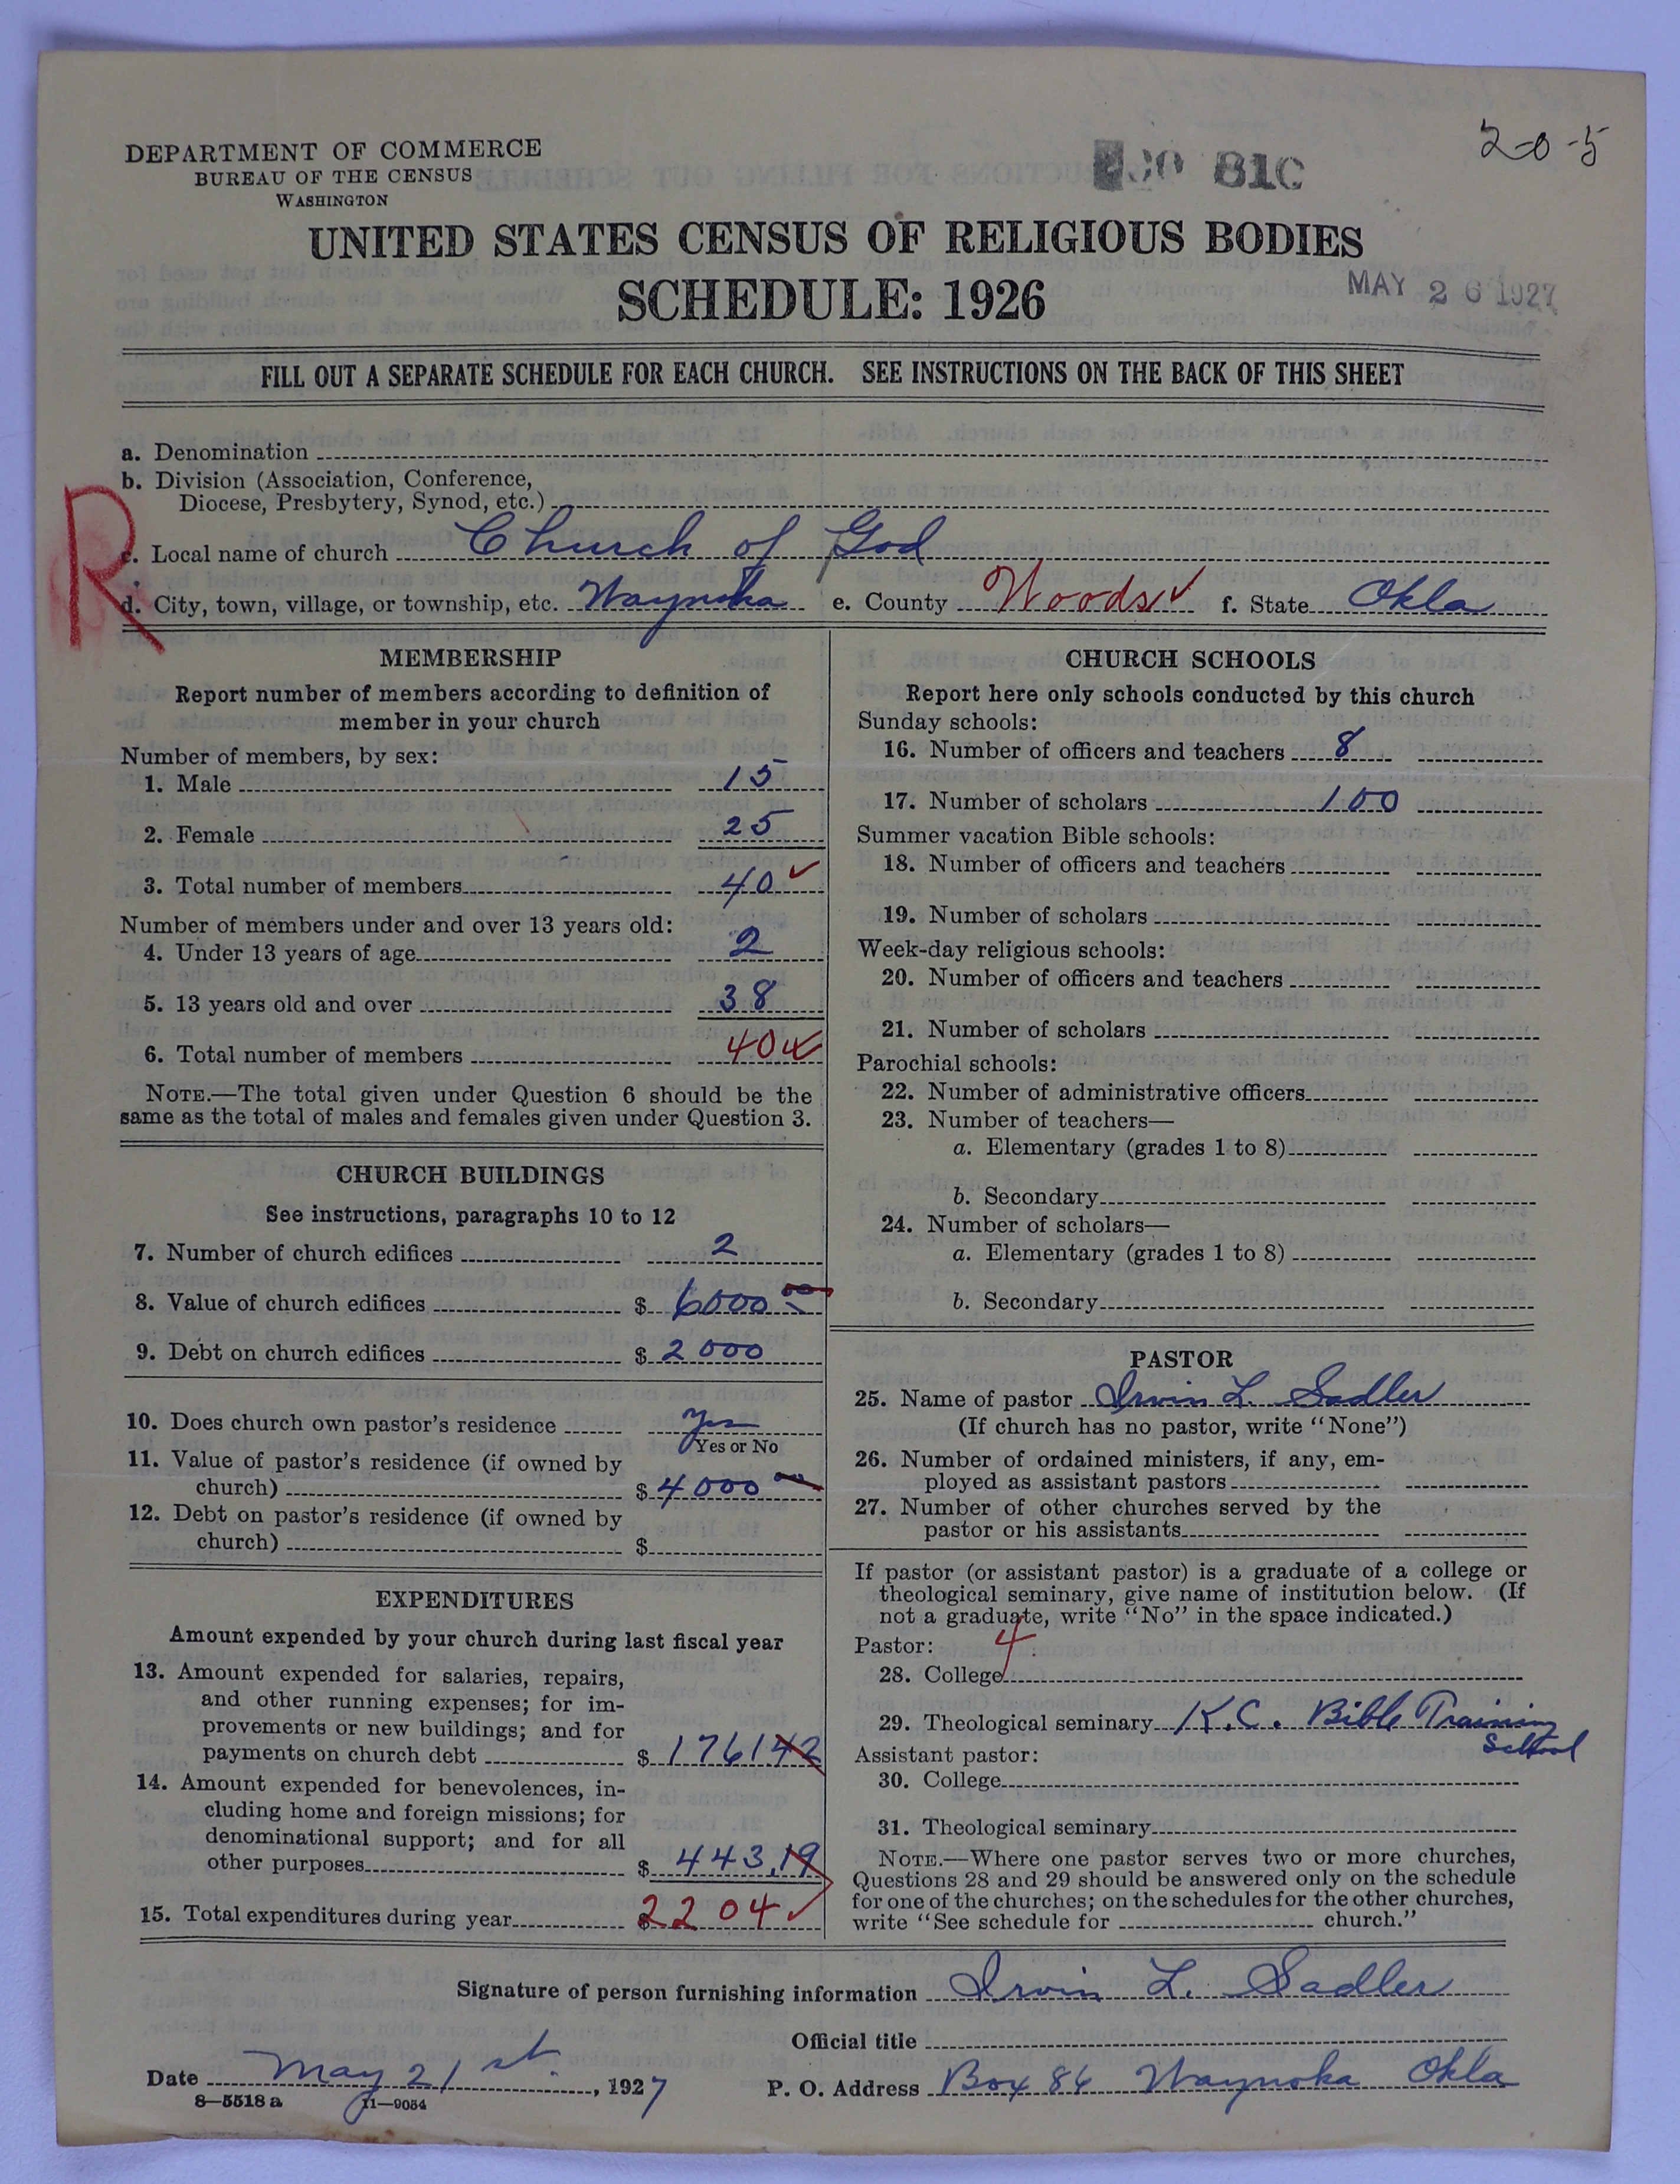 2-0-5
DEPARTMENT OF COMMERCE
BUREAU OF THE CENSUS
WASHINGTON
81C
UNITED STATES CENSUS OF RELIGIOUS BODIES
SCHEDULE: 1926
MAY 26 1927
FILL OUT A SEPARATE SCHEDULE FOR EACH CHURCH. SEE INSTRUCTIONS ON THE BACK OF THIS SHEET
a. Denomination
b. Division (Association, Conference,
Diocese, Presbytery, Synod, etc.)
R
c. Local name of church Church of God
d. City, town, village, or township, etc. Waynoka e. County Woods ✓ f. State Okla
MEMBERSHIP
Report number of members according to definition of
member in your church
Number of members, by sex:
1. Male 15
2. Female 25
3. Total number of members 40 ✓
Number of members under and over 13 years old:
4. Under 13 years of age 2
5. 13 years old and over 38
6. Total number of members 40 ✓
NOTE.—The total given under Question 6 should be the
same as the total of males and females given under Question 3.
CHURCH BUILDINGS
See instructions, paragraphs 10 to 12
7. Number of church edifices 2
8. Value of church edifices $ 6000 00
9. Debt on church edifices $ 2000
10. Does church own pastor's residence Yes
Yes or No
11. Value of pastor's residence (if owned by
church) $ 4000 00
12. Debt on pastor's residence (if owned by
church) $
EXPENDITURES
Amount expended by your church during last fiscal year
13. Amount expended for salaries, repairs,
and other running expenses; for im-
provements or new buildings; and for
payments on church debt $ 1761.42
14. Amount expended for benevolences, in-
cluding home and foreign missions; for
denominational support; and for all
other purposes $ 443.19
15. Total expenditures during year $ 2204 ✓
CHURCH SCHOOLS
Report here only schools conducted by this church
Sunday schools:
16. Number of officers and teachers 8
17. Number of scholars 100
Summer vacation Bible schools:
18. Number of officers and teachers
19. Number of scholars
Week-day religious schools:
20. Number of officers and teachers
21. Number of scholars
Parochial schools:
22. Number of administrative officers
23. Number of teachers—
a. Elementary (grades 1 to 8)
b. Secondary
24. Number of scholars—
a. Elementary (grades 1 to 8)
b. Secondary
PASTOR
25. Name of pastor Irvin L. Sadler
(If church has no pastor, write "None")
26. Number of ordained ministers, if any, em-
ployed as assistant pastors
27. Number of other churches served by the
pastor or his assistants
If pastor (or assistant pastor) is a graduate of a college or
theological seminary, give name of institution below. (If
not a graduate, write "No" in the space indicated.)
Pastor: 4
28. College
29. Theological seminary K.C. Bible Training
School
Assistant pastor:
30. College
31. Theological seminary
NOTE.—Where one pastor serves two or more churches,
Questions 28 and 29 should be answered only on the schedule
for one of the churches; on the schedules for the other churches,
write "See schedule for church."
Signature of person furnishing information Irvin L. Sadler
Official title
Date May 21st, 1927 P. O. Address Box 86 Waynoka Okla
8—5518 a 11—9054